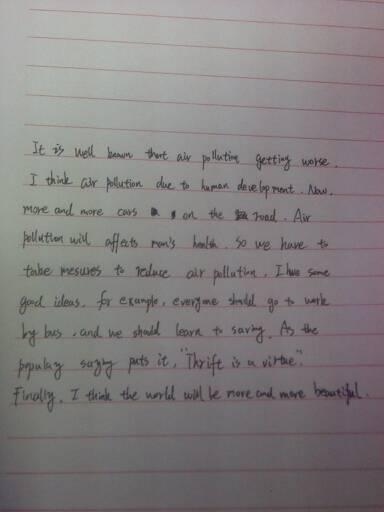 It is well known that air pollution getting worse.
I think air pollution due to human development. Now,
more and more cars on the road. Air
pollution will affects man's health. So we have to
take mesures to reduce air pollution. I have some
good ideas. for example, everyone should go to work
by bus, and we should learn to saving. As the
popular saying puts it, "Thrift is a virtue".
Finally, I think the world will be more and more beautiful.